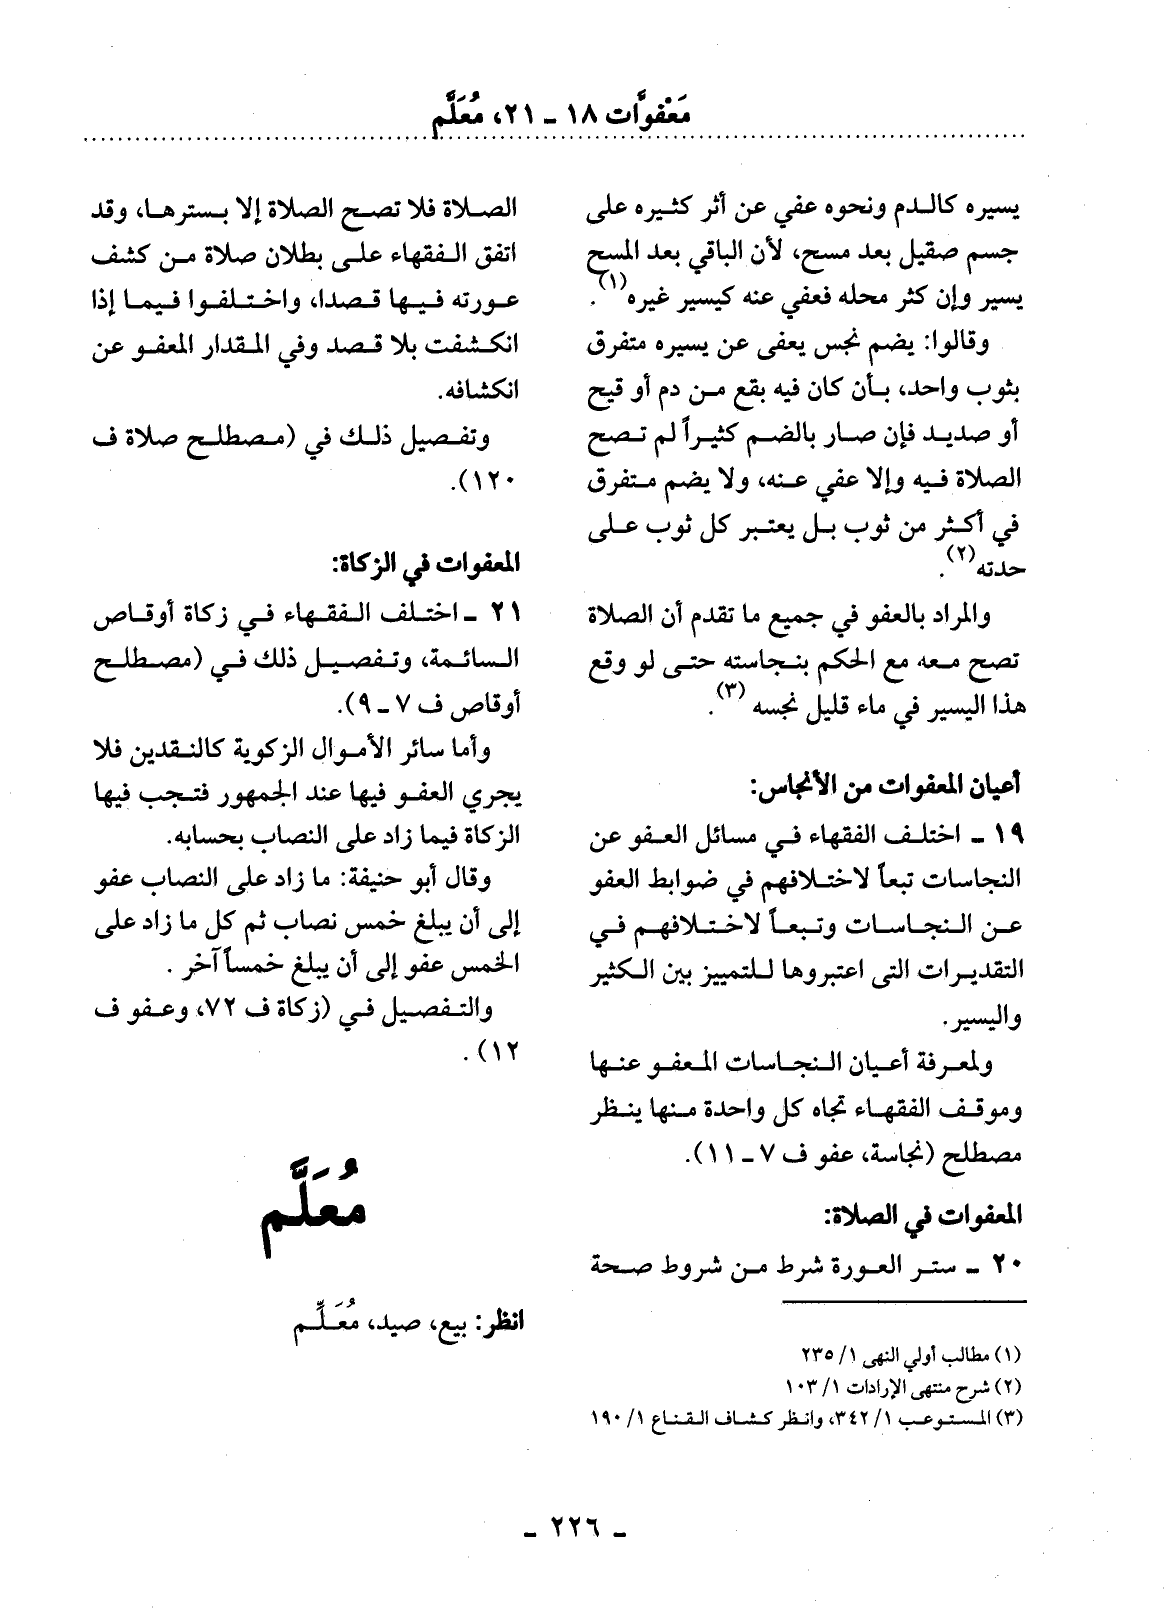 مَعْفوَّات ١٨ ـ ٢١، مُعَلَّم
يسيره كالدم ونحوه عفي عن أثر كثيره على
جسم صقيل بعد مسح، لأن الباقي بعد المسح
يسير وإن كثر محله فعفي عنه كيسير غيره(١).
وقالوا: يضم نجس يعفى عن يسيره متفرق
بثوب واحد، بأن كان فيه بقع من دم أو قيح
أو صديد فإن صار بالضم كثيراً لم تصح
الصلاة فيه وإلا عفي عنه، ولا يضم متفرق
في أكثر من ثوب بل يعتبر كل ثوب على
حدته(٢).
والمراد بالعفو في جميع ما تقدم أن الصلاة
تصح معه مع الحكم بنجاسته حتى لو وقع
هذا اليسير في ماء قليل نجسه (٣).
أعيان المعفوات من الأنجاس:
١٩ ـ اختلف الفقهاء في مسائل العفو عن
النجاسات تبعاً لاختلافهم في ضوابط العفو
عن النجاسات وتبعاً لاختلافهم في
التقديرات التى اعتبروها للتمييز بين الكثير
واليسير.
ولمعرفة أعيان النجاسات المعفو عنها
وموقف الفقهاء تجاه كل واحدة منها ينظر
مصطلح (نجاسة، عفو ف ٧ ـ ١١).
المعفوات في الصلاة:
٢٠ ـ ستر العورة شرط من شروط صحة
(١) مطالب أولي النهى ١/ ٢٣٥
(٢) شرح منتهى الإرادات ١/ ١٠٣
(٣) المستوعب ١/ ٣٤٢، وانظر كشاف القناع ١/ ١٩٠
الصلاة فلا تصح الصلاة إلا بسترها، وقد
اتفق الفقهاء على بطلان صلاة من كشف
عورته فيها قصدا، واختلفوا فيما إذا
انكشفت بلا قصد وفي المقدار المعفو عن
انكشافه.
وتفصيل ذلك في (مصطلح صلاة ف
١٢٠).
المعفوات في الزكاة:
٢١ ـ اختلف الفقهاء في زكاة أوقاص
السائمة، وتفصيل ذلك في (مصطلح
أوقاص ف ٧ ـ ٩).
وأما سائر الأموال الزكوية كالنقدين فلا
يجري العفو فيها عند الجمهور فتجب فيها
الزكاة فيما زاد على النصاب بحسابه.
وقال أبو حنيفة: ما زاد على النصاب عفو
إلى أن يبلغ خمس نصاب ثم كل ما زاد على
الخمس عفو إلى أن يبلغ خمساً آخر .
والتفصيل في (زكاة ف ٧٢، وعفو ف
١٢) .
مُعَلَّم
انظر: بيع، صيد، مُعَلِّم
ـ ٢٢٦ ـ